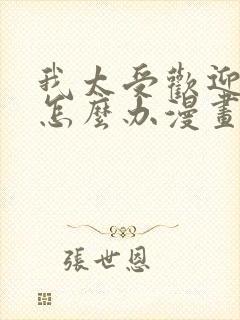 我太受歡迎
怎麼办漫畫
張世恩